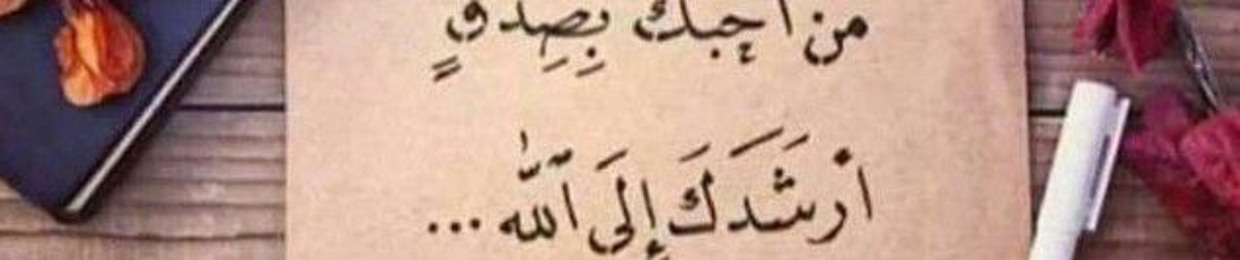 من احبك بِصِدقٍ
ارشَدَكَ إِلَى اللّٰه ...